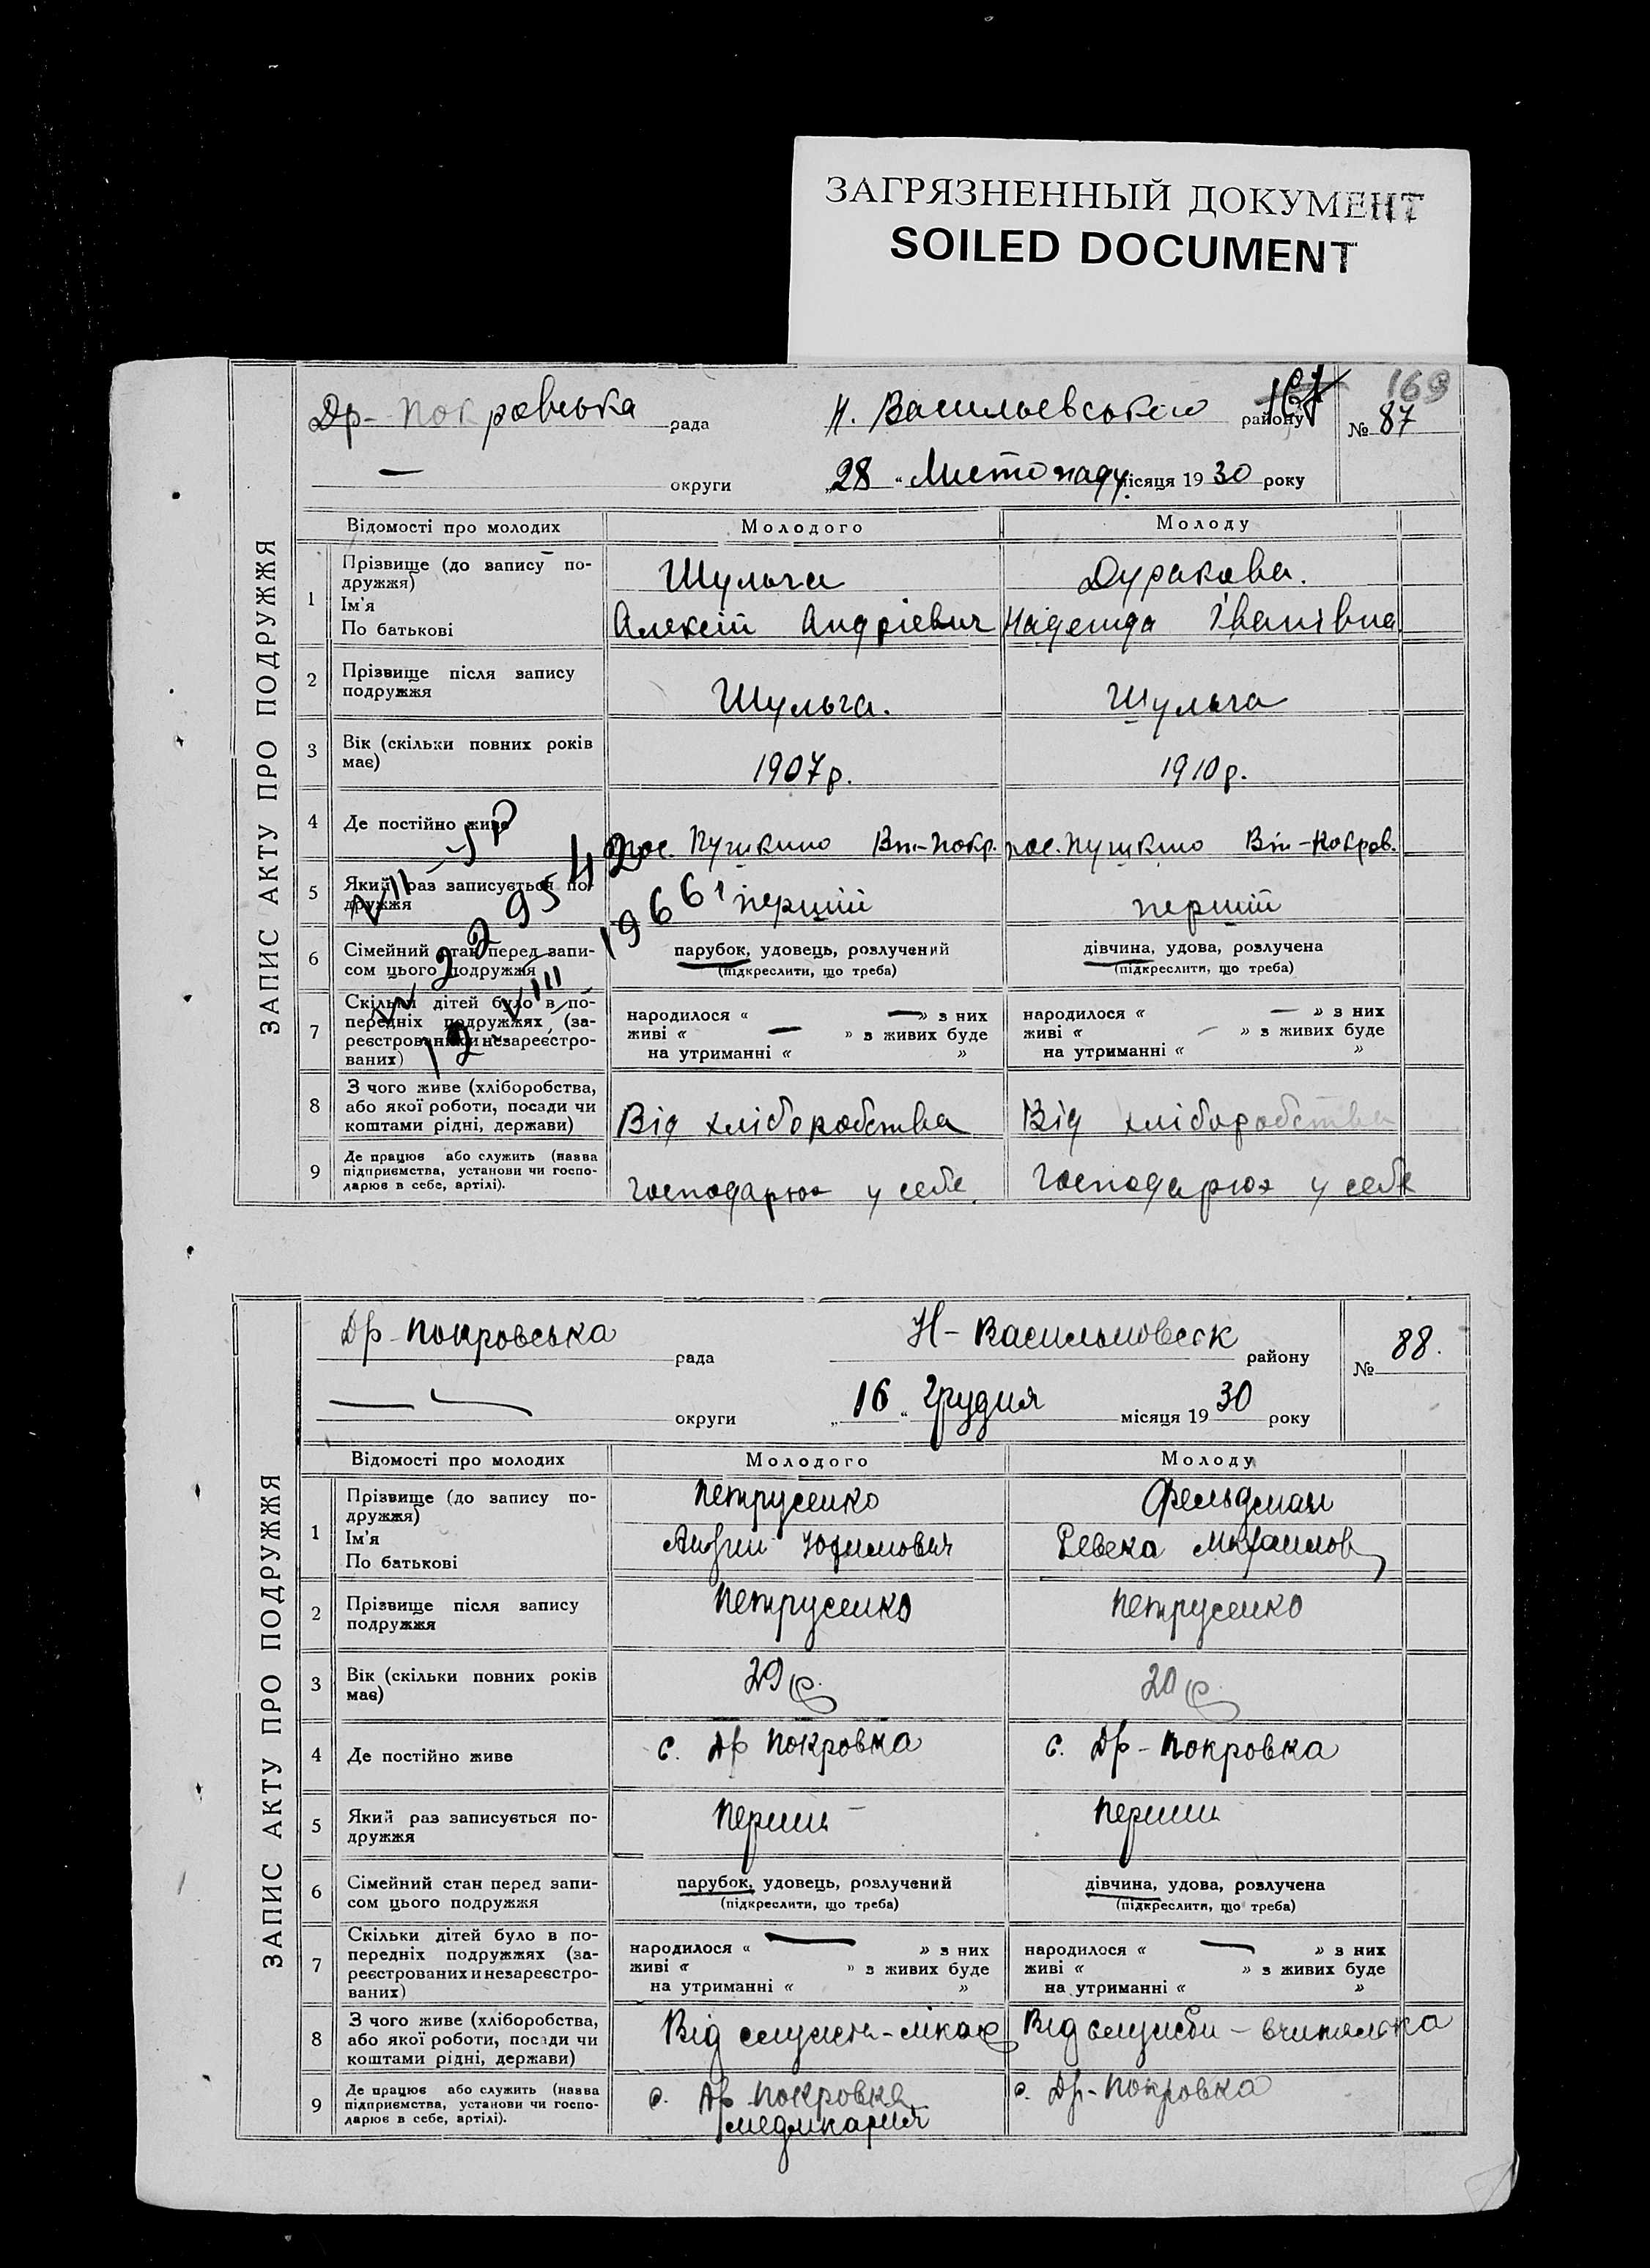 ЗАГРЯЗНЕННЫЙ ДОКУМЕНТ
SOILED DOCUMENT
169
ЗАПИС АКТУ ПРО ПОДРУЖЖЯ
Др-Покровська рада Н. Васильевського району № 87
— округи „28“ Листопаду місяця 1930 року
Відомості про молодих Молодого Молоду
1 Прізвище (до запису по-
дружжя) Шульга Дуракова.
Ім'я
По батькові Алексій Андріевич Надежда Іванівна
2 Прізвище після запису
подружжя Шульга. Шульга
3 Вік (скільки повних років
має) 1907р. 1910р.
4 Де постійно живе пос. Пушкино Вт-Покр. пос. Пушкино Вт-Покров.
5 Який раз записується по-
дружжя перший перший
6 Сімейний стан перед запи-
сом цього подружжя парубок, удовець, розлучений дівчина, удова, розлучена
(підкреслити, що треба) (підкреслити, що треба)
7 Скільки дітей було в по-
передніх подружжях (за-
реєстрованих и незареєстро-
ваних)
народилося « — » з них народилося « — » з них
живі « — » з живих буде живі « — » з живих буде
на утриманні « » на утриманні « »
8 З чого живе (хліборобства,
або якої роботи, посади чи
коштами рідні, держави) Від хліборобства Від хліборобства
9 Де працює або служить (назва
підприємства, установи чи госпо-
дарює в себе, артілі). Господарює у себе. Господарює у себе
ЗАПИС АКТУ ПРО ПОДРУЖЖЯ
Др-Покровська рада Н-Васильовеск району № 88.
— округи „16“ Грудня місяця 1930 року
Відомості про молодих Молодого Молоду
1 Прізвище (до запису по-
дружжя) Петрусенко Фельдман
Ім'я
По батькові Андрій Юхимович Ревека Михаилов
2 Прізвище після запису
подружжя Петрусенко Петрусенко
3 Вік (скільки повних років
має) 29 р. 20 р.
4 Де постійно живе с. Др Покровка с. Др-Покровка
5 Який раз записується по-
дружжя Перший Перший
6 Сімейний стан перед запи-
сом цього подружжя парубок, удовець, розлучений дівчина, удова, розлучена
(підкреслити, що треба) (підкреслити, що треба)
7 Скільки дітей було в по-
передніх подружжях (за-
реєстрованих и незареєстро-
ваних)
народилося « — » з них народилося « — » з них
живі « » з живих буде живі « » з живих буде
на утриманні « » на утриманні « »
8 З чого живе (хліборобства,
або якої роботи, посади чи
коштами рідні, держави) Від служби-лікар Від служби-вчителька
9 Де працює або служить (назва
підприємства, установи чи госпо-
дарює в себе, артілі). с. Др Покровка с. Др-Покровка